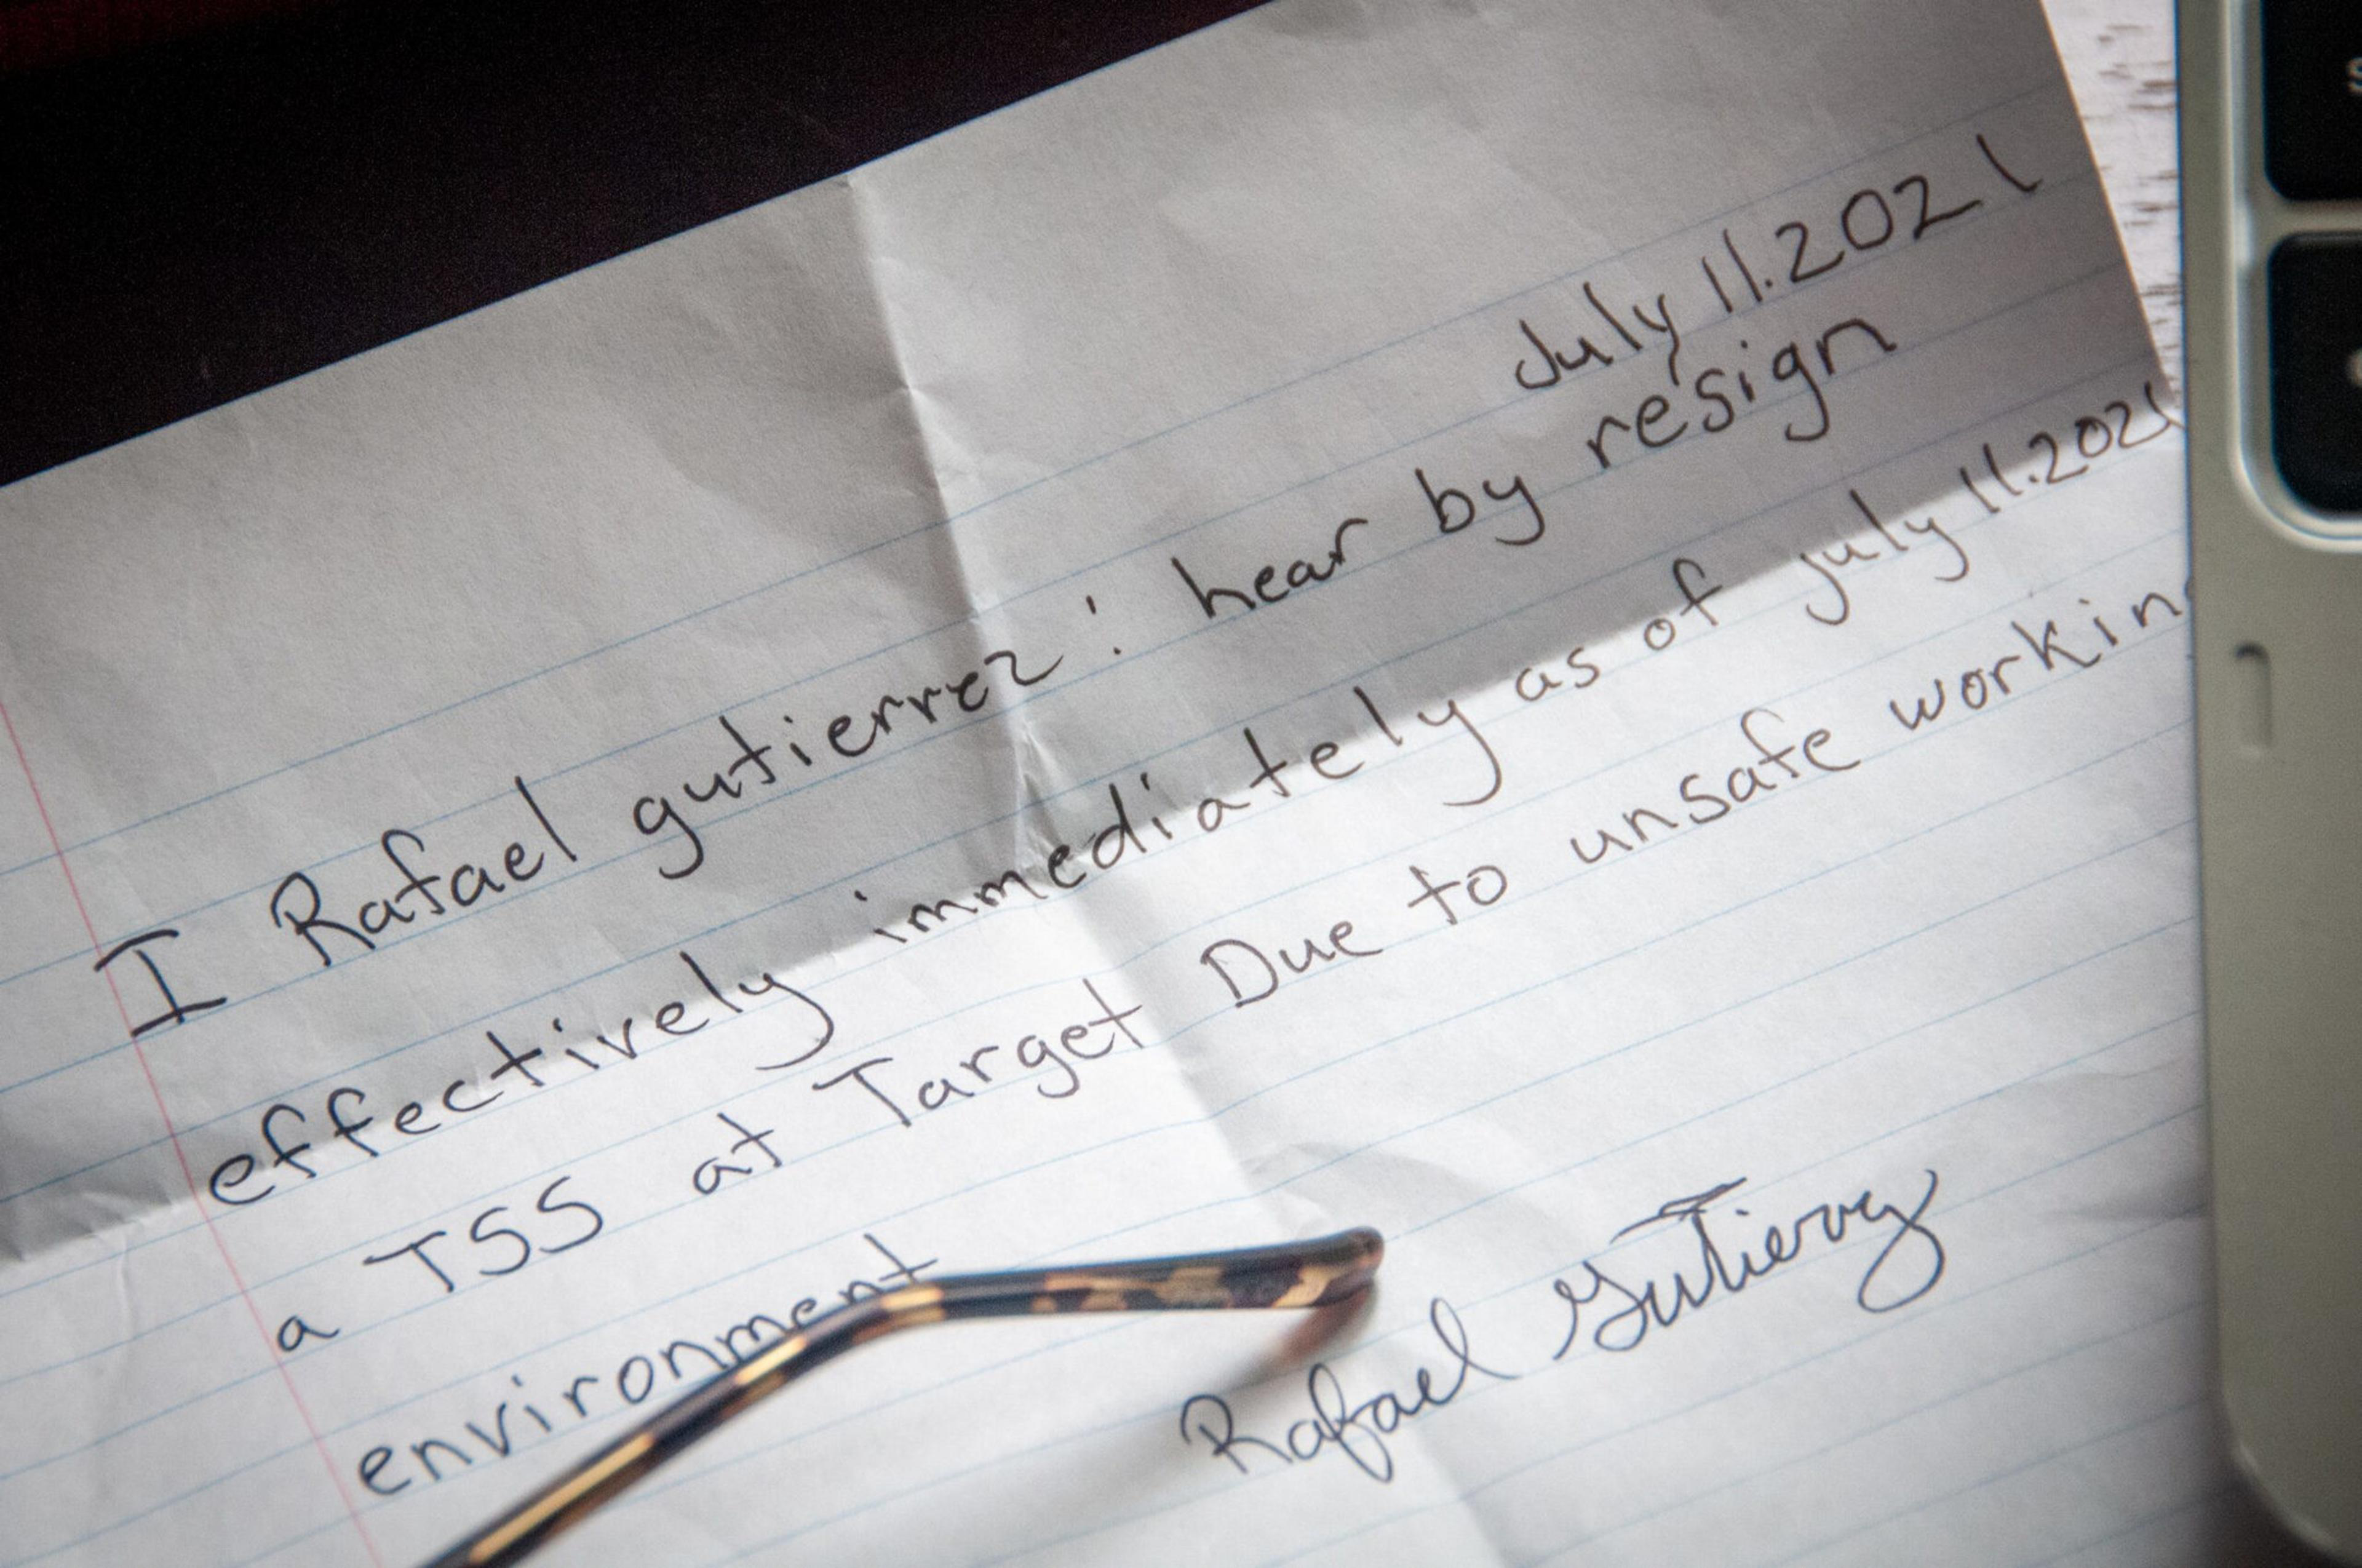 July 11.2021
I Rafael gutierrez: hear by resign
effectively immediately as of july 11.2021
a TSS at Target Due to unsafe workin
environment
Rafael Gutierrez